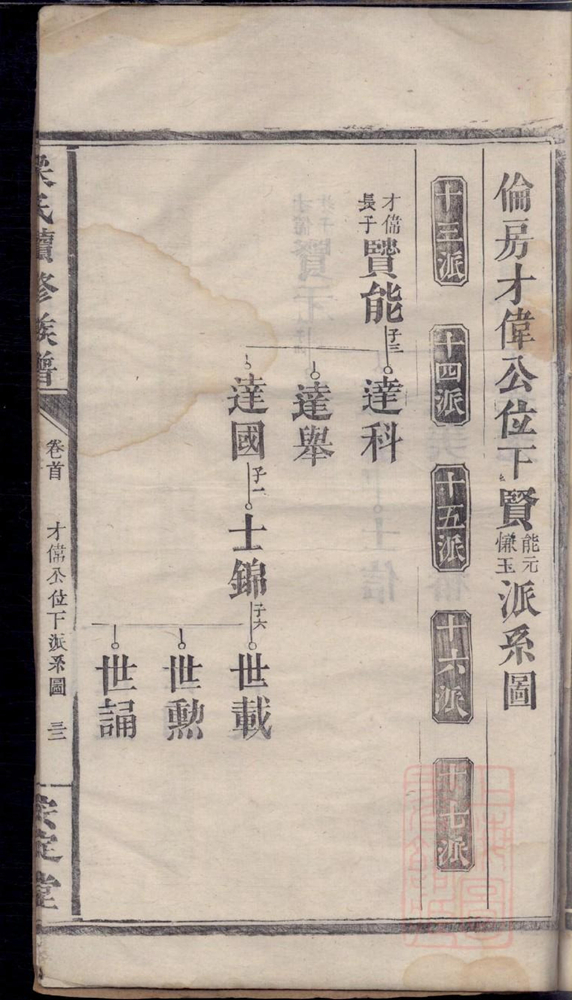 倫房才偉公位下賢能元慊玉派系圖
十三派
十四派
十五派
十六派
十七派
才偉長子賢能子三
達科
達舉
達國子一
士錦子六
世載
世勲
世誦
氏續修族譜
卷首
才偉公位下派系圖
三三
定堂